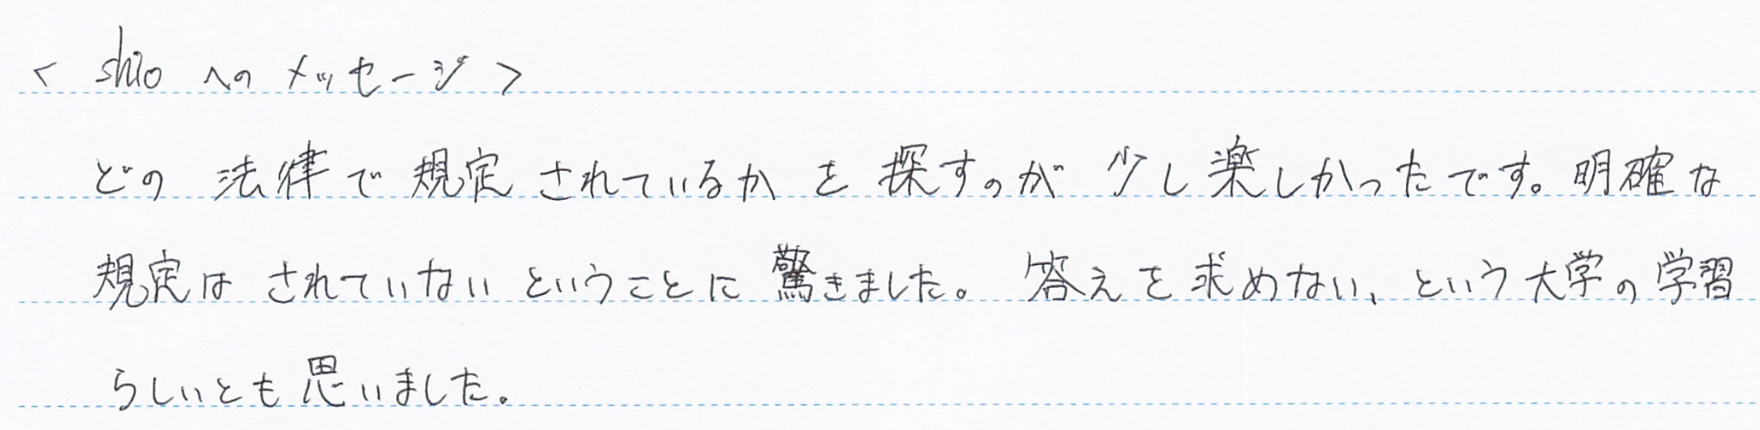 < shio へのメッセージ >
どの法律で規定されているかを探すのが少し楽しかったです。明確な
規定はされていないということに驚きました。答えを求めない、という大学の学習
らしいとも思いました。